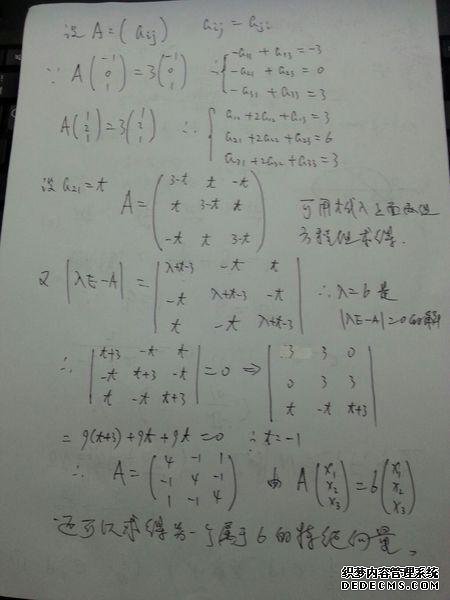 设 A = (aij)  aij = aji
∵ A(-1 0 1) = 3(-1 0 1)  ∴ { -a11 + a13 = -3
-a21 + a23 = 0
-a31 + a33 = 3
A(1 2 1) = 3(1 2 1)  ∴ { a11 + 2a12 + a13 = 3
a21 + 2a22 + a23 = 6
a31 + 2a32 + a33 = 3
设 a21 = t  A = (3-t t -t
t 3-t t
-t t 3-t)
可用 t 代入上面两组
方程组求得.
又 |λE-A| = |λ+t-3 -t t
-t λ+t-3 -t
t -t λ+t-3|
∴ λ=6 是
|λE-A|=0 的解
∴ |t+3 -t t
-t t+3 -t
t -t t+3| = 0 ⇒ |3 3 0
0 3 3
t -t t+3|
= 9(t+3) + 9t + 9t = 0  ∴ t = -1
∴ A = (4 -1 1
-1 4 -1
1 -1 4)  由 A(x1 x2 x3) = 6(x1 x2 x3)
还可以求得另一个属于 6 的特征向量。
织梦内容管理系统
DEDECMS.COM